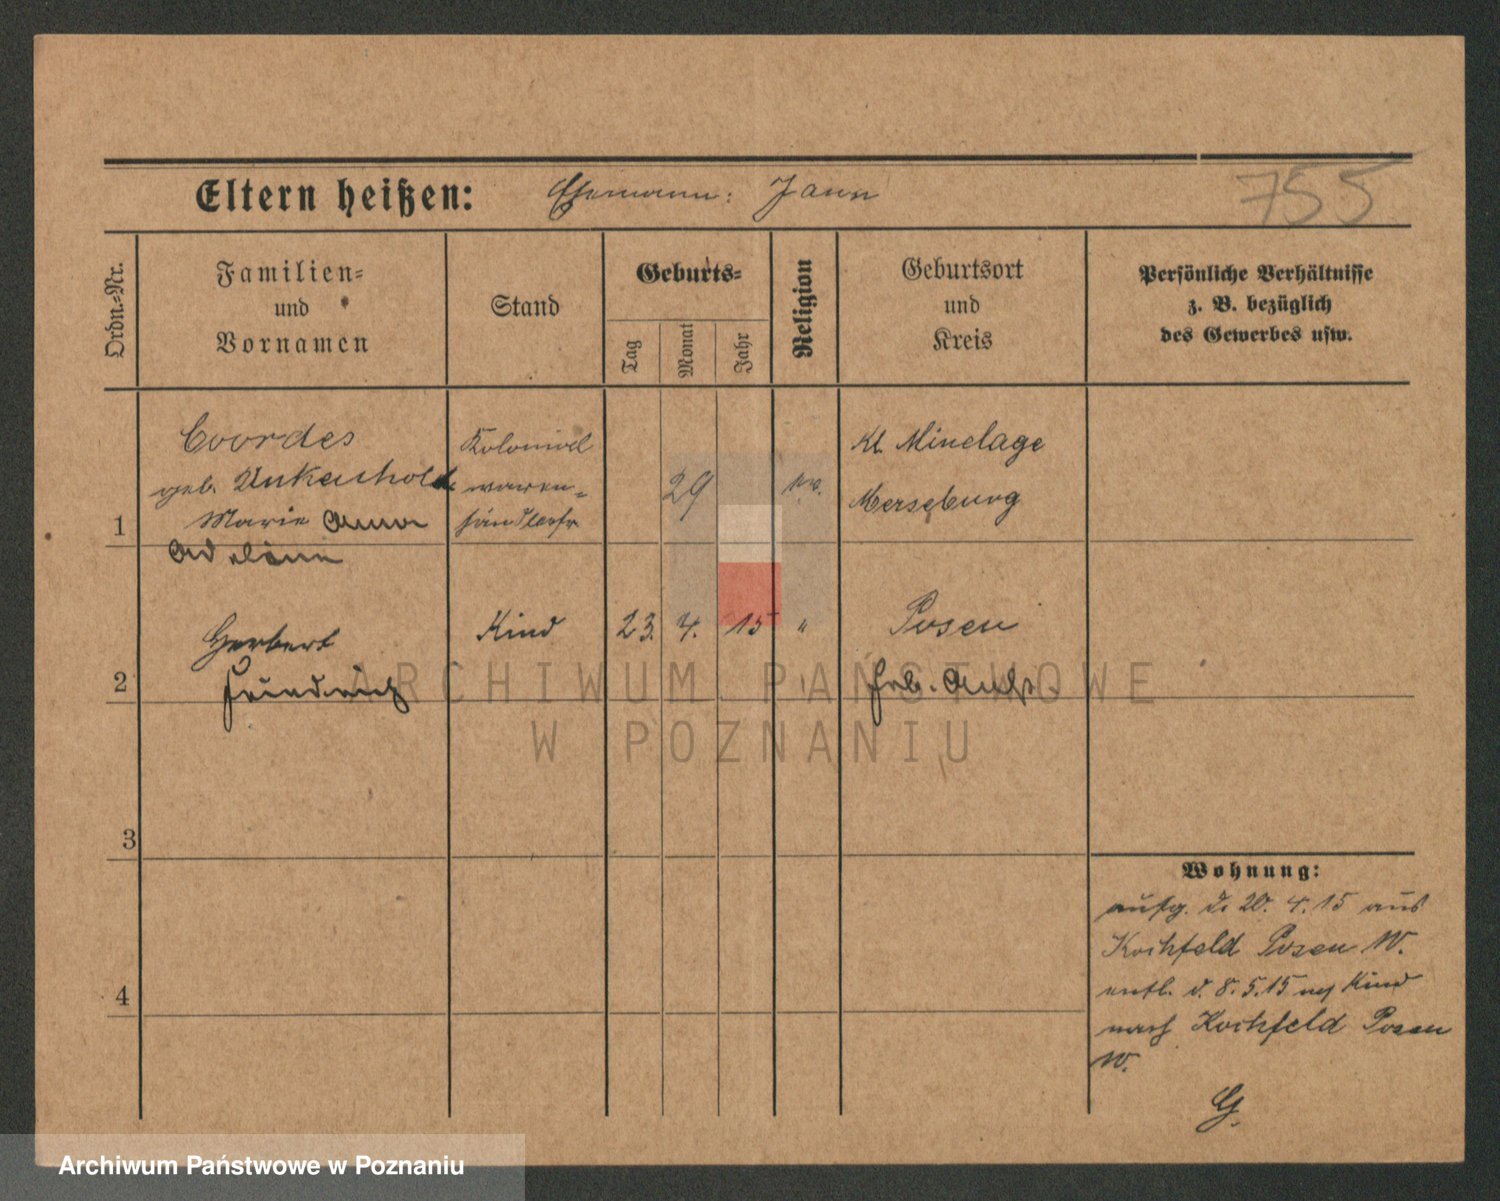 Eltern heißen: Ehemann: Jann
755
Ordn.-Nr.
Familien-
und
Vornamen
Stand
Geburts-
Tag
Monat
Jahr
Religion
Geburtsort
und
Kreis
Persönliche Verhältnisse
z. B. bezüglich
des Gewerbes usw.
1
Coordes
geb.
Marie Anna
Kolonial
waren-
händlersfr
29
ev.
Kl. Mimelage
Merseburg
2
Herbert
Friedrich
Kind
23. 4. 15 "
Posen
3
4
Wohnung:
aufg. d. 20. 4. 15 aus
Kochfeld Posen W.
entl. d. 8. 5. 15 Kind
nach Kochfeld Posen
W.
G.
ARCHIWUM PAŃSTWOWE
W POZNANIU
Archiwum Państwowe w Poznaniu